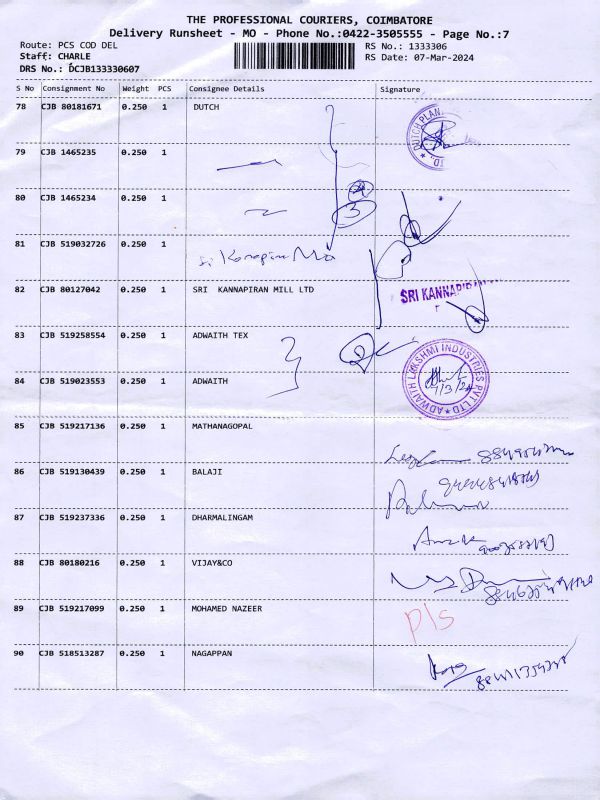 THE PROFESSIONAL COURIERS, COIMBATORE
Delivery Runsheet - MO - Phone No.:0422-3505555 - Page No.:7
Route: PCS COD DEL RS No.: 1333306
Staff: CHARLE RS Date: 07-Mar-2024
DRS No.: DCJB133330607
S No Consignment No Weight PCS Consignee Details Signature
78 CJB 80181671 0.250 1 DUTCH
DUTCH PLAN
79 CJB 1465235 0.250 1
80 CJB 1465234 0.250 1
3
81 CJB 519032726 0.250 1
82 CJB 80127042 0.250 1 SRI KANNAPIRAN MILL LTD
SRI KANNAPIRAN
83 CJB 519258554 0.250 1 ADWAITH TEX
84 CJB 519023553 0.250 1 ADWAITH
ADWAITH LAKSHMI INDUSTRIES PVT LTD
7/3/24
85 CJB 519217136 0.250 1 MATHANAGOPAL
86 CJB 519130439 0.250 1 BALAJI
87 CJB 519237336 0.250 1 DHARMALINGAM
88 CJB 80180216 0.250 1 VIJAY&CO
89 CJB 519217099 0.250 1 MOHAMED NAZEER
P/s
90 CJB 518513287 0.250 1 NAGAPPAN